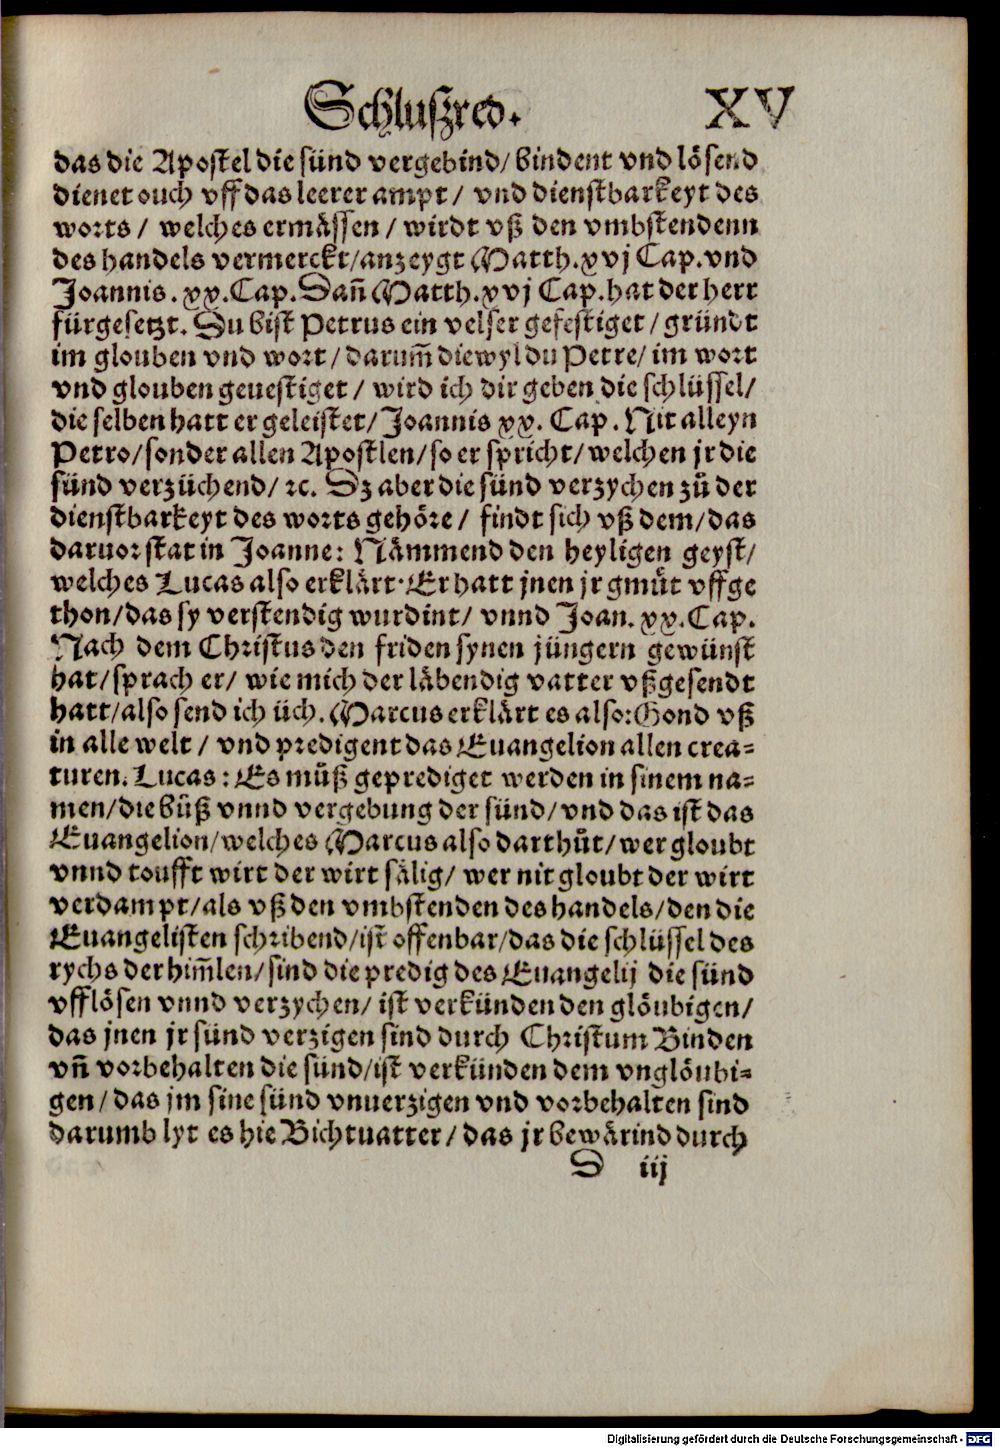 Schluſzred. XV
das die Apostel die sünd vergebind/ bindent vnd lösend
dienet ouch vff das leerer ampt / vnd dienstbarkeyt des
worts / welches ermässen / wirdt vß den vmbstendenn
des handels vermerckt/anzeygt Matth.xvj Cap.vnd
Joannis. xx. Cap. Dañ Matth.xvj Cap. hat der herr
fürgesetzt. Du bist Petrus ein velser gefestiget / gründt
im glouben vnd wort / darum̃ diewyl du Petre/ im wort
vnd glouben geuestiget / wird ich dir geben die schlüssel/
die selben hatt er geleistet/ Joannis xx. Cap. Nit alleyn
Petro/sonder allen Apostlen/ so er spricht/ welchen jr die
sünd verzüchend/ ꝛc. Dz aber die sünd verzychen zů der
dienstbarkeyt des worts gehöre / findt sich vß dem/das
daruor stat in Joanne: Nämmend den heyligen geyst/
welches Lucas also erklärt. Er hatt jnen jr gmüt vffge
thon/das sy verstendig wurdint/ vnnd Joan. xx. Cap.
Nach dem Christus den friden synen jüngern gewünst
hat/sprach er/ wie mich der läbendig vatter vßgesendt
hatt/also send ich üch. Marcus erklärt es also: Gond vß
in alle welt / vnd predigent das Euangelion allen crea-
turen. Lucas: Es můß geprediget werden in sinem na-
men/die bůß vnnd vergebung der sünd/vnd das ist das
Euangelion/welches Marcus also darthůt/wer gloubt
vnnd toufft wirt der wirt sälig/ wer nit gloubt der wirt
verdampt/als vß den vmbstenden des handels/den die
Euangelisten schribend/ist offenbar/das die schlüssel des
rychs der him̃len/sind die predig des Euangelij die sünd
vfflösen vnnd verzychen/ ist verkünden den glöubigen/
das jnen jr sünd verzigen sind durch Christum Binden
vñ vorbehalten die sünd/ist verkünden dem vnglöubi-
gen / das jm sine sünd vnuerzigen vnd vorbehalten sind
darumb lyt es hie Bichtuatter / das jr bewärind durch
D iij
Digitalisierung gefördert durch die Deutsche Forschungsgemeinschaft - DFG